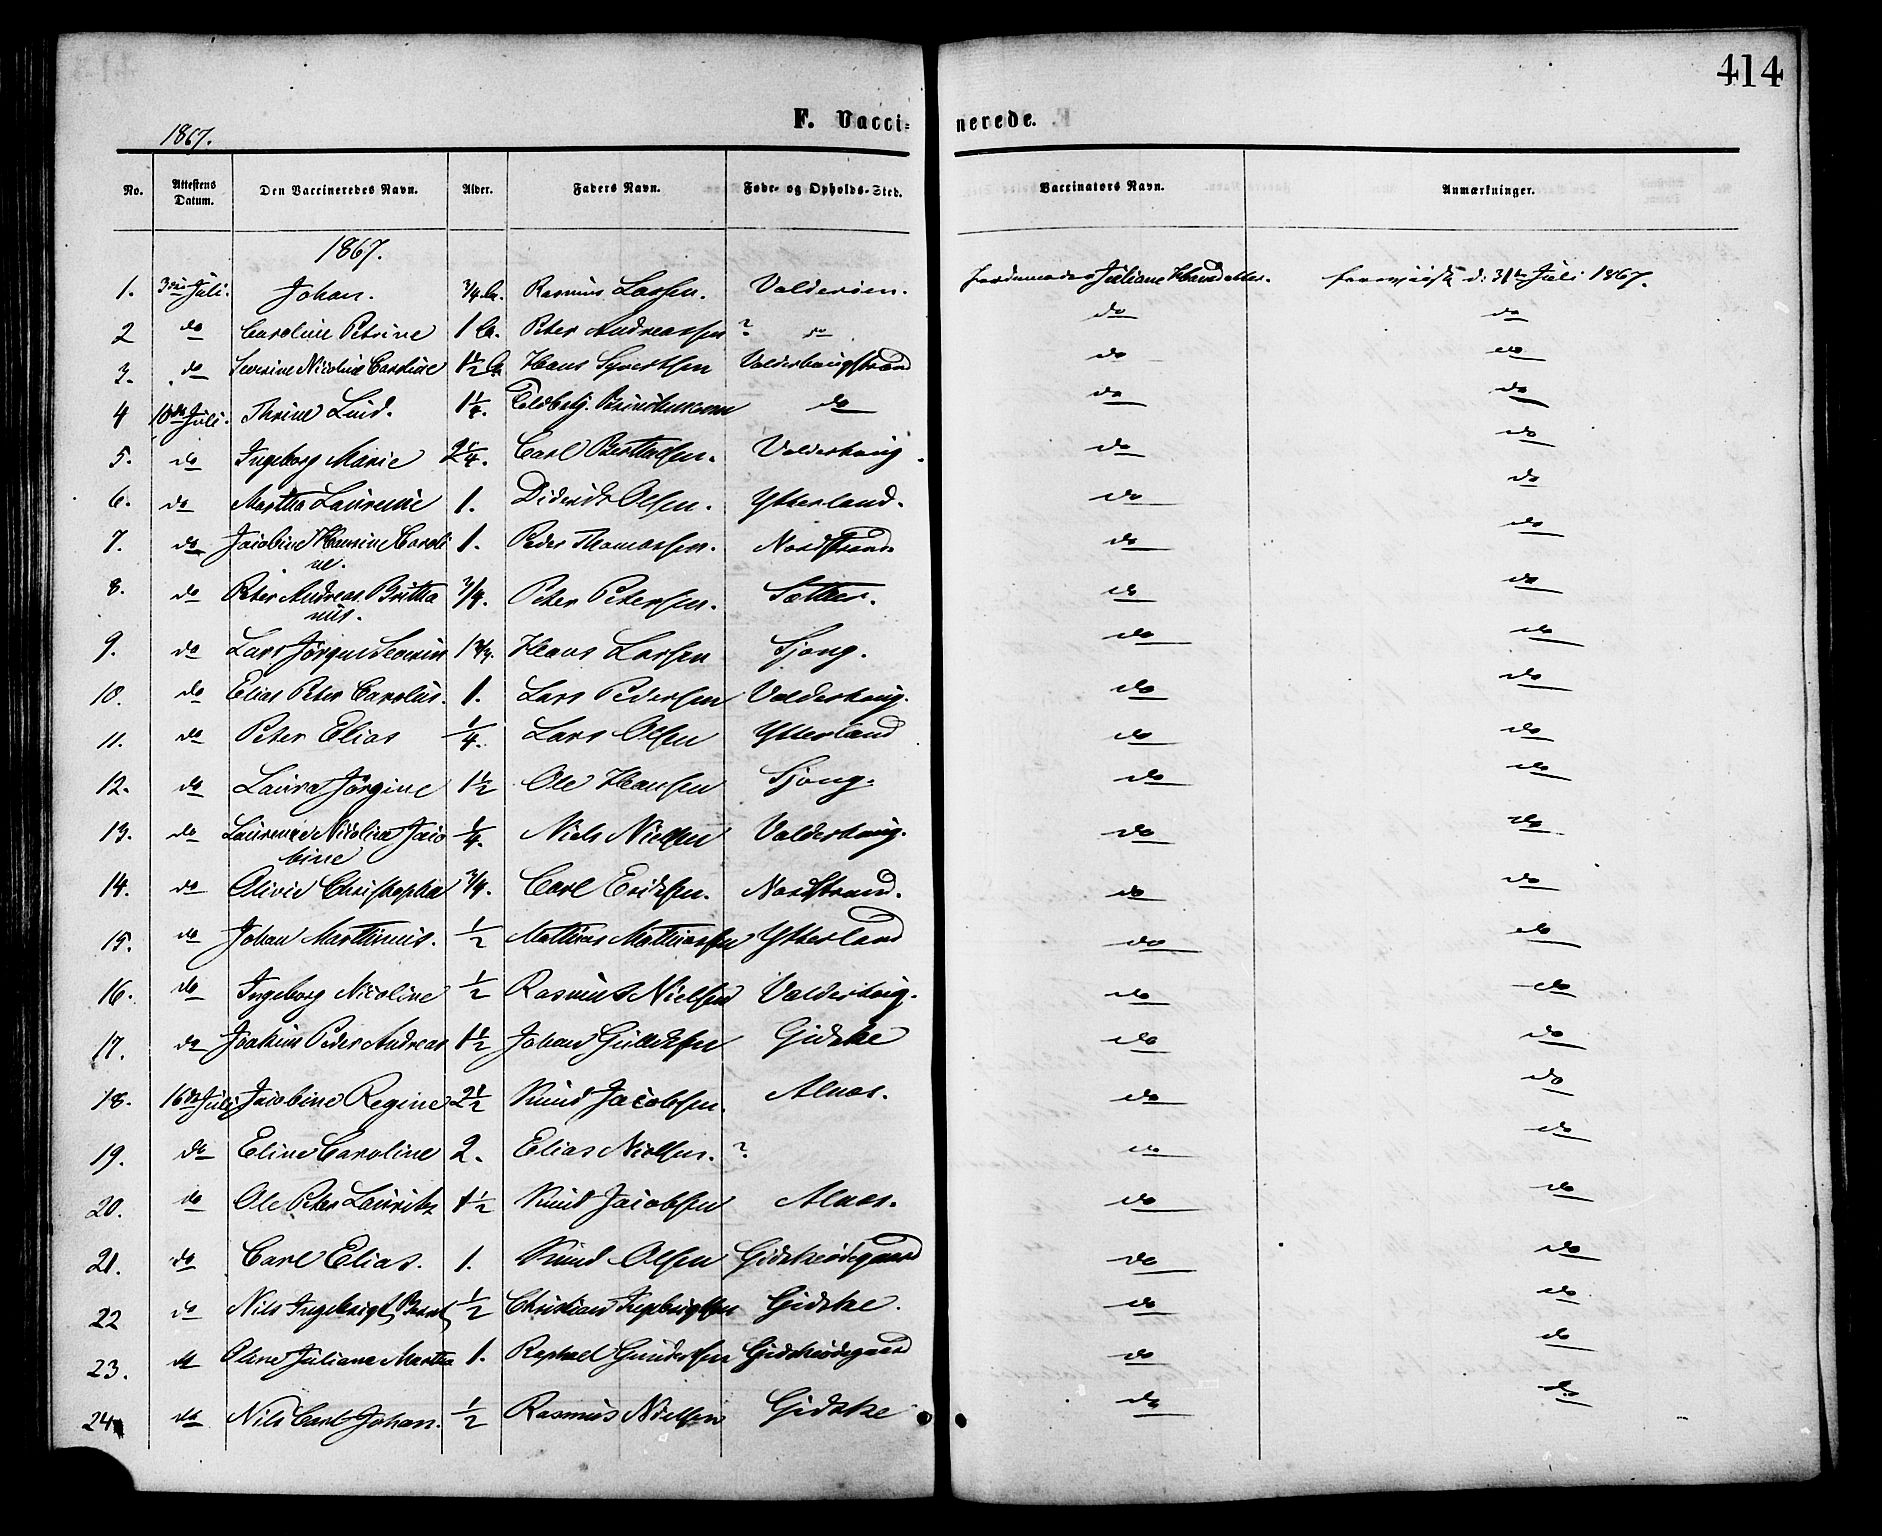 414
F. Vacci-nerede.
1867.
No. Attestens Datum. Den Vaccineredes Navn. Alder. Faders Navn. Føde- og Opholds-Sted. Vaccinators Navn. Anmærkninger.
1867.
1. 3die Juli. Johan. 3/4 Rasmus Larsen. Valderøen. Juliane d: 31te Juli 1867.
2 do Caroline Petrine 1 Peter Andreassen ? do do do
3. do Severine Nicoline Caroline 1 1/2 Hans Syvertsen do do
4 10de Juli. Thrine Lind. 1 1/4. do do do
5. do Ingeborg Marie 2 1/4. Carl Berthelsen. Valderhoug. do do
6. do Martha Laurentie 1. Didrik Olsen. Ytterland. do do
7. do Jacobine Hansine Caroli 1. Peder Thomassen. Nordstrand. do do
ne.
8. do Peter Andreas Britha 3/4. Peter Petersen. Sætter. do do
nus.
9. do Lars Jørgen Severin 1 3/4. Hans Larsen Sjong. do do
10. do Elias Peter Carolus. 1. Lars Pedersen Valderhoug. do do
11. do Peter Elias 1/4. Lars Olsen Ytterland do do
12. do Laura Jørgine 1 1/2 Ole Hansen Sjong. do do
13. do Laurence Nicolina Jaco 1/4. Niels Nielsen Valderhoug. do do
bine
14. do Olivie Christopha 3/4. Carl Eriksen. Nordstrand. do do
15. do Johan Martinus. 1/2 Mathias Mathiassen Ytterland do do
16. do Ingeborg Nicoline 1/2 Rasmus Nielsen Valderhoug. do do
17. do Joakim Peder Andreas 1 1/2 Johan Gidske do do
18. 16de Juli Jacobine Regine 2 1/2 Knud Jacobsen. Alnæs. do do
19. do Eline Caroline 2. Elias Nielsen. ? do do
20. do Ole Peter Lauritz 1 1/2 Knud Jacobsen Alnæs. do do
21. do Carl Elias. 1. Knud Olsen Gidskeødegaard do do
22 do Nils Ingebrigt Bernt 1/2 Christian Ingebrigtsen Gidske. do do
23. do Oline Juliane Martha 1. Raphael Gundersen Gidskeødegaard do do
24. do Nils Carl Johan. 1/2 Rasmus Nielsen Gidske do do